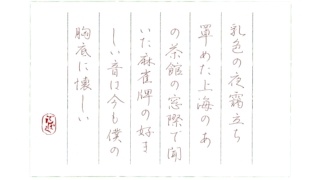 乳色の夜霧立ち
罩めた上海のあ
の茶館の窓際で聞
いた麻雀牌の好ま
しい音は今も僕の
胸底に懐しい